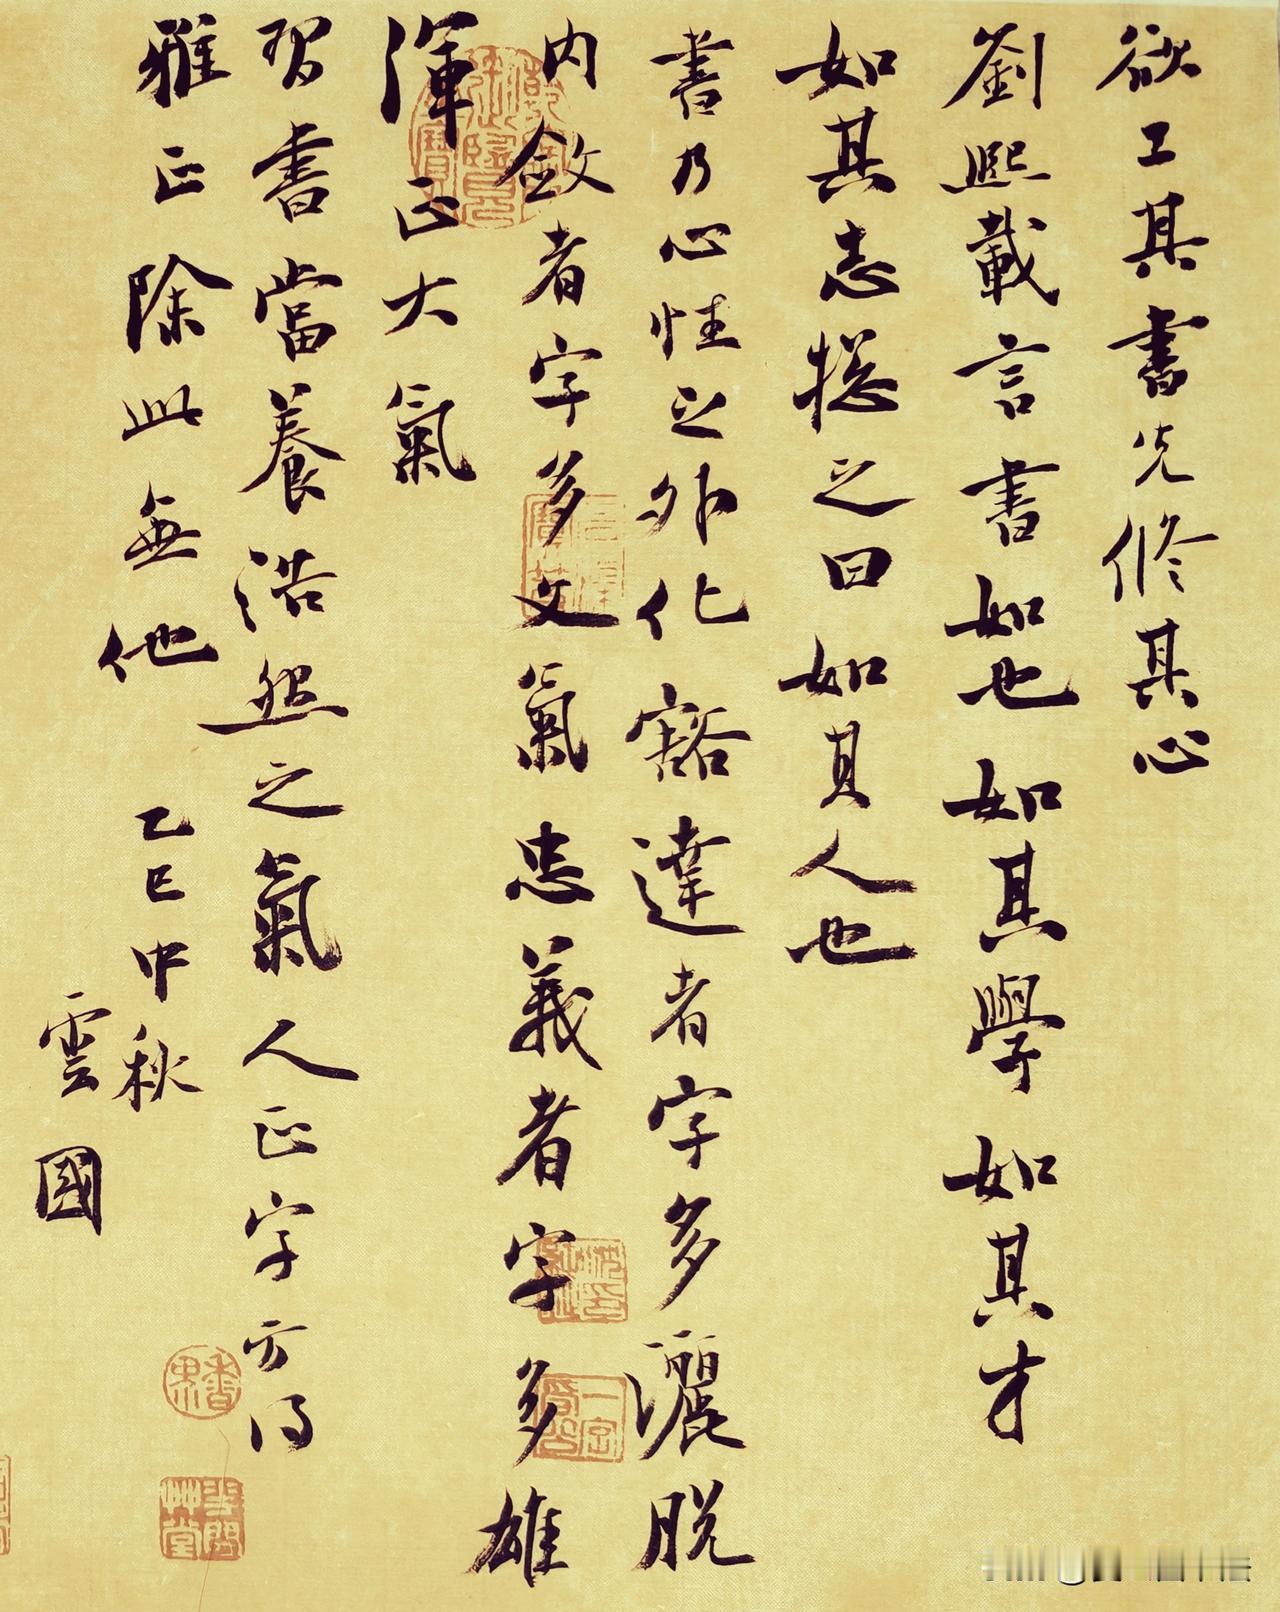 欲工其書先修其心
劉熙載言書如也如其學如其才
如其志揔之曰如其人也
書乃心性之外化豁達者字多灑脱
内斂者字多文氣忠義者字多雄
渾正大氣
習書當養浩然之氣人正字方得
雅正除此無他
乙巳中秋
雲國